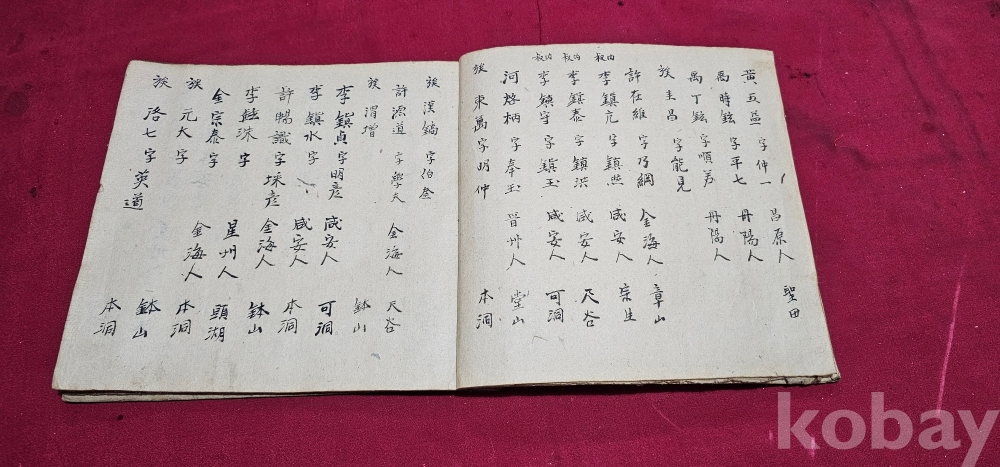 黃五益 字仲一 昌原人 聖田
禹時鉉 字平七 丹陽人
禹丁鉉 字順若 丹陽人
族圭昌 字能見
許在維 字乃綱 金海人 章山
内叔 李鎮元 字鎮熙 咸安人 宗生
内叔 李鎮泰 字鎮洪 咸安人 尺谷
内叔 李鎮守 字鎮玉 咸安人 可洞
河炯柄 字奉玉 晉州人 堂山
族東萬 字明仲 本洞
族漢鎬 字伯奎
許源道 字學天 金海人 尺谷
族渭增 鉢山
李鎮貞 字明彦 咸安人 可洞
李鎮水 字 咸安人 本洞
許暢識 字埰彦 金海人 鉢山
李鉉洙 字 星州人 頭湖
金宗泰 字 金海人 本洞
族元大 字 鉢山
族洛七 字英道 本洞
kobay